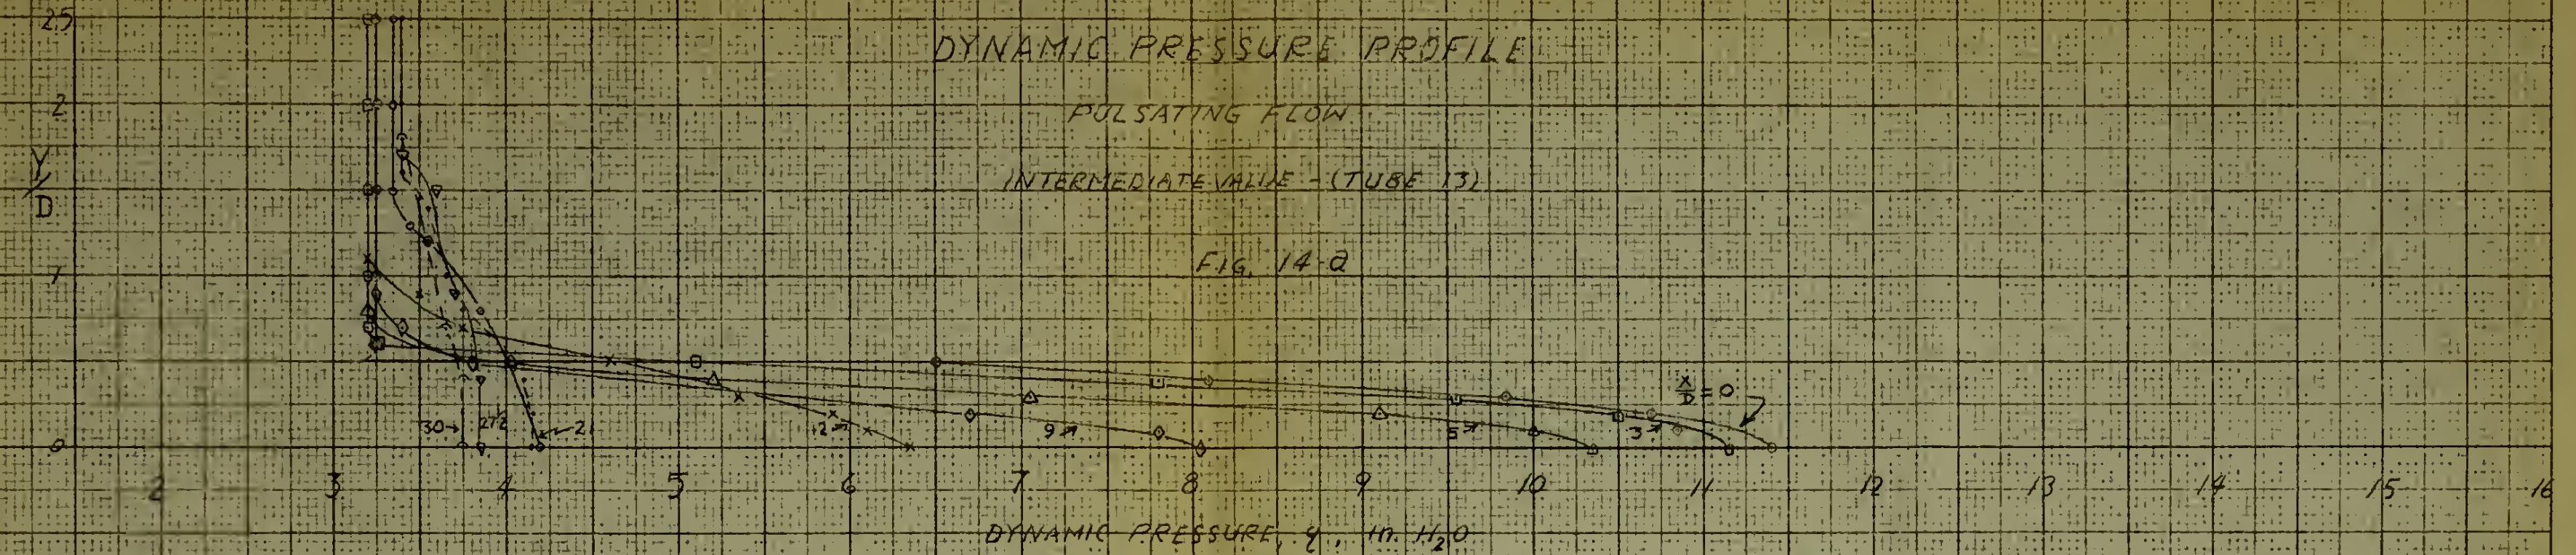 DYNAMIC PRESSURE PROFILE
PULSATING FLOW
INTERMEDIATE VALUE - (TUBE 13)
FIG. 14-a
2.5
2
Y/D
1
0
X/D = 0
30
27½
21
12
9
5
3
2 3 4 5 6 7 8 9 10 11 12 13 14 15 16
DYNAMIC PRESSURE, q, in. H₂O